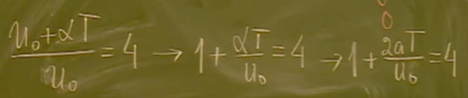 0
0
(u₀+αT)/u₀ = 4 → 1 + αT/u₀ = 4 → 1 + 2aT/u₀ = 4